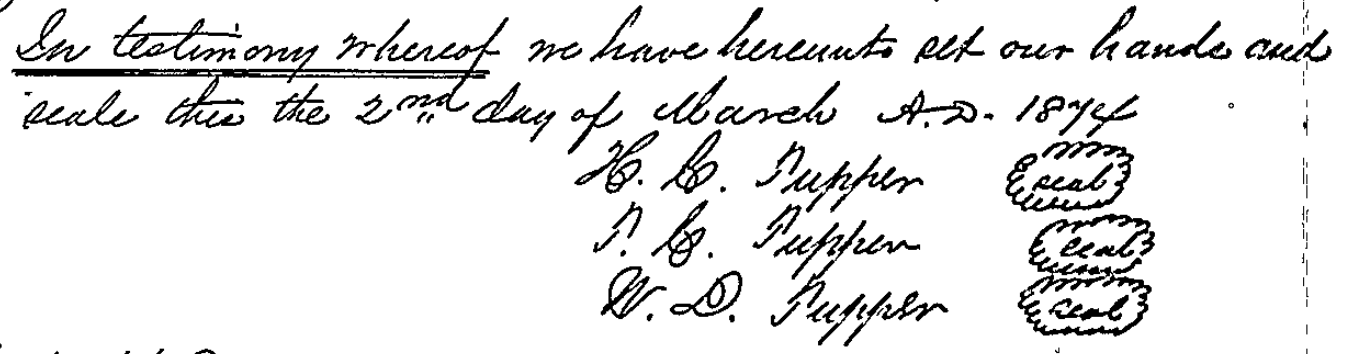 In testimony whereof we have hereunto set our hands and
seals this the 2nd day of March A.D. 1874
H. C. Tupper seal
T. C. Tupper seal
W. D. Tupper seal